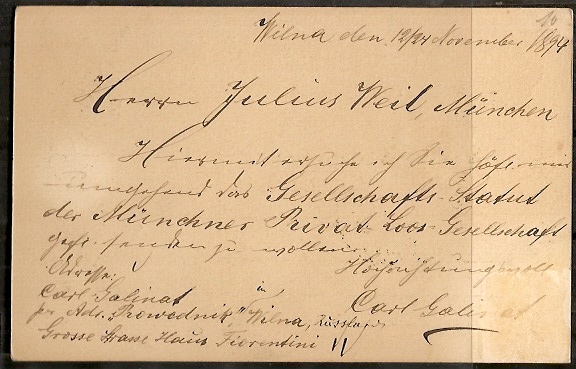 10
Wilna den 12/24 November 1894
Herrn Julius Weil, München
Hiermit ersuche ich Sie höfl. mir
umgehend das Gesellschafts-Statut
der Münchner Privat-Loos-Gesellschaft
gefl. senden zu wollen.
Hochachtungsvoll
Carl Galinat
Adresse:
Carl Galinat in
pr. Adr. „Prowodnik", Wilna, Russland
Grosse Strasse Haus Fiorentini